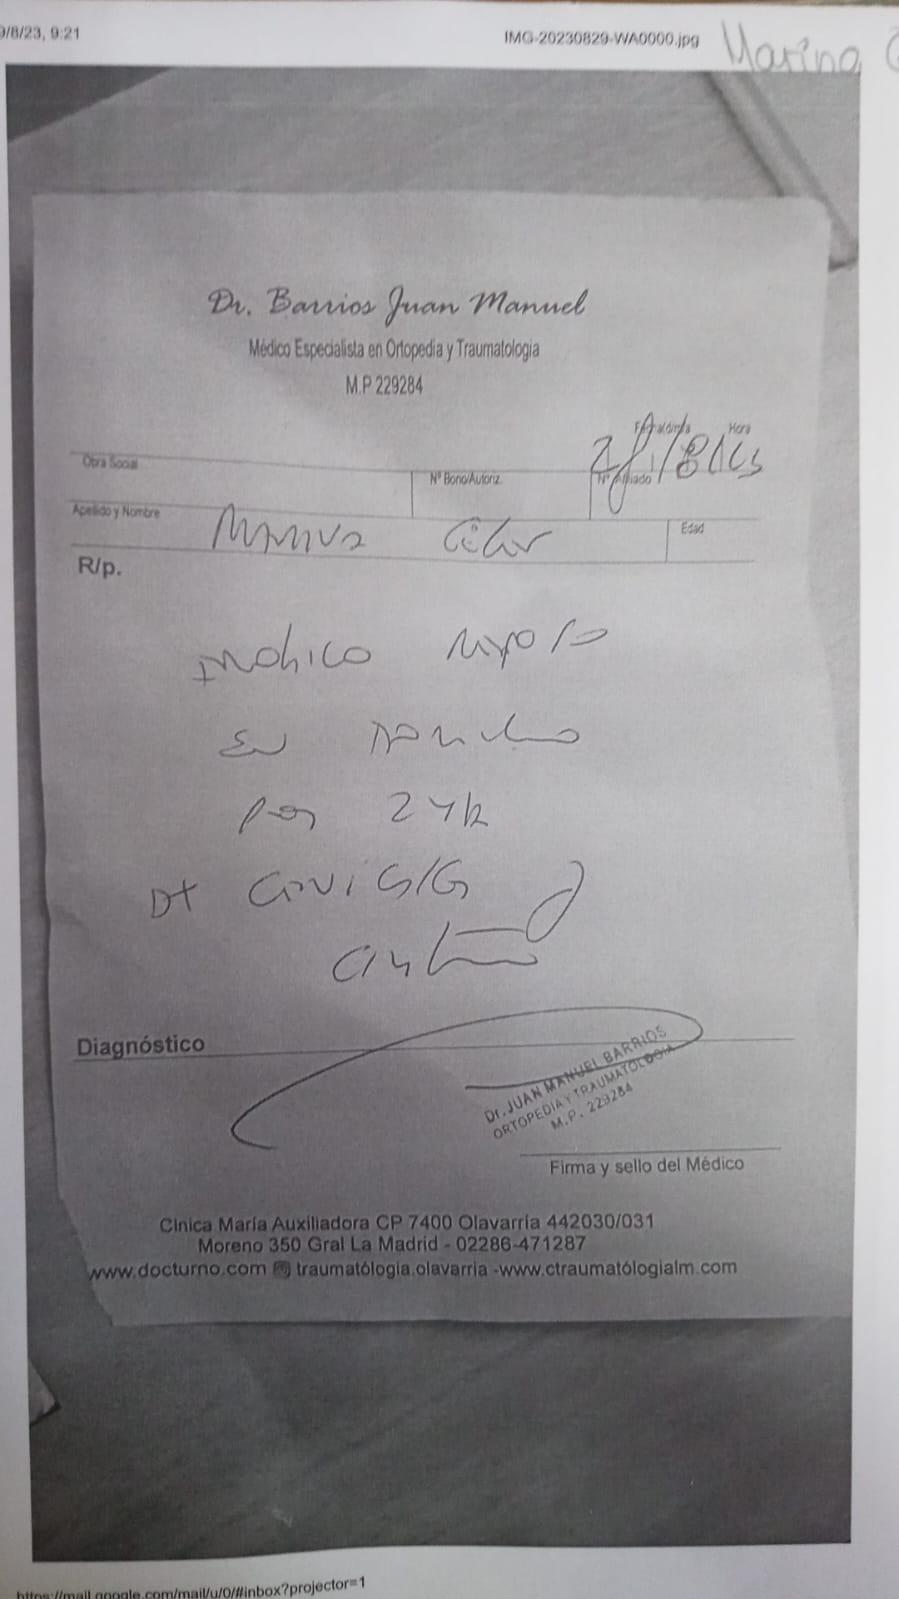 9/8/23, 9:21
IMG-20230829-WA0000.jpg
Marino
Dr. Barrios Juan Manuel
Médico Especialista en Ortopedia y Traumatología
M.P 229284
Hora
Obra Social
Nº Bono/Autoriz.
Nº Afiliado
Apellido y Nombre
Edad
R/p.
Indico reposo
en
por 24h
Dx
Diagnóstico
Dr. JUAN MANUEL BARRIOS
ORTOPEDIA Y TRAUMATOLOGIA
M.P. 229284
Firma y sello del Médico
Cinica María Auxiliadora CP 7400 Olavarría 442030/031
Moreno 350 Gral La Madrid - 02286-471287
www.docturno.com traumatólogia.olavarria -www.ctraumatólogialm.com
https://mail.google.com/mail/u/0/#inbox?projector=1